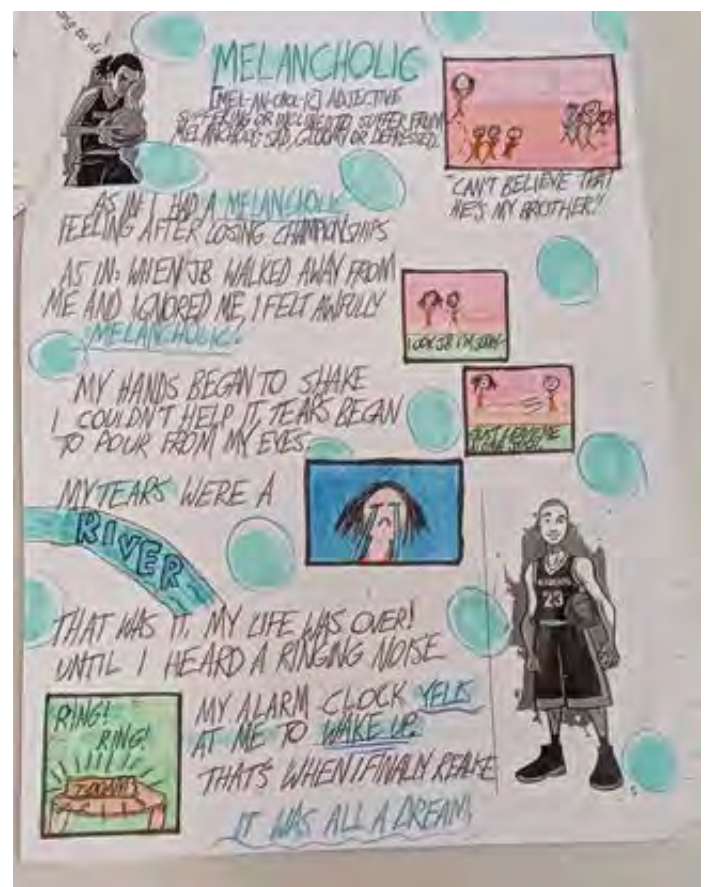 ng to do!
MELANCHOLIC
[MEL-AN-CHOL-IC] ADJECTIVE
SUFFERING OR INCLINED TO SUFFER FROM
MELANCHOLIC: SAD, GLOOMY OR DEPRESSED.
"CAN'T BELIEVE THAT
HE'S MY BROTHER!"
AS IN: I HAD A MELANCHOLIC
FEELING AFTER LOSING CHAMPIONSHIPS
AS IN: WHEN JB WALKED AWAY FROM
ME AND IGNORED ME, I FELT AWFULLY
MELANCHOLIC.
LOOK JB I'M SORRY
MY HANDS BEGAN TO SHAKE
I COULDN'T HELP IT, TEARS BEGAN
TO POUR FROM MY EYES.
JUST LEAVE ME
MY TEARS WERE A
RIVER
THAT WAS IT. MY LIFE WAS OVER!
UNTIL I HEARD A RINGING NOISE
RING!
RING!
7:00AM
MY ALARM CLOCK YELLS
AT ME TO WAKE UP.
THAT'S WHEN I FINALLY REALIZE
IT WAS ALL A DREAM!
23